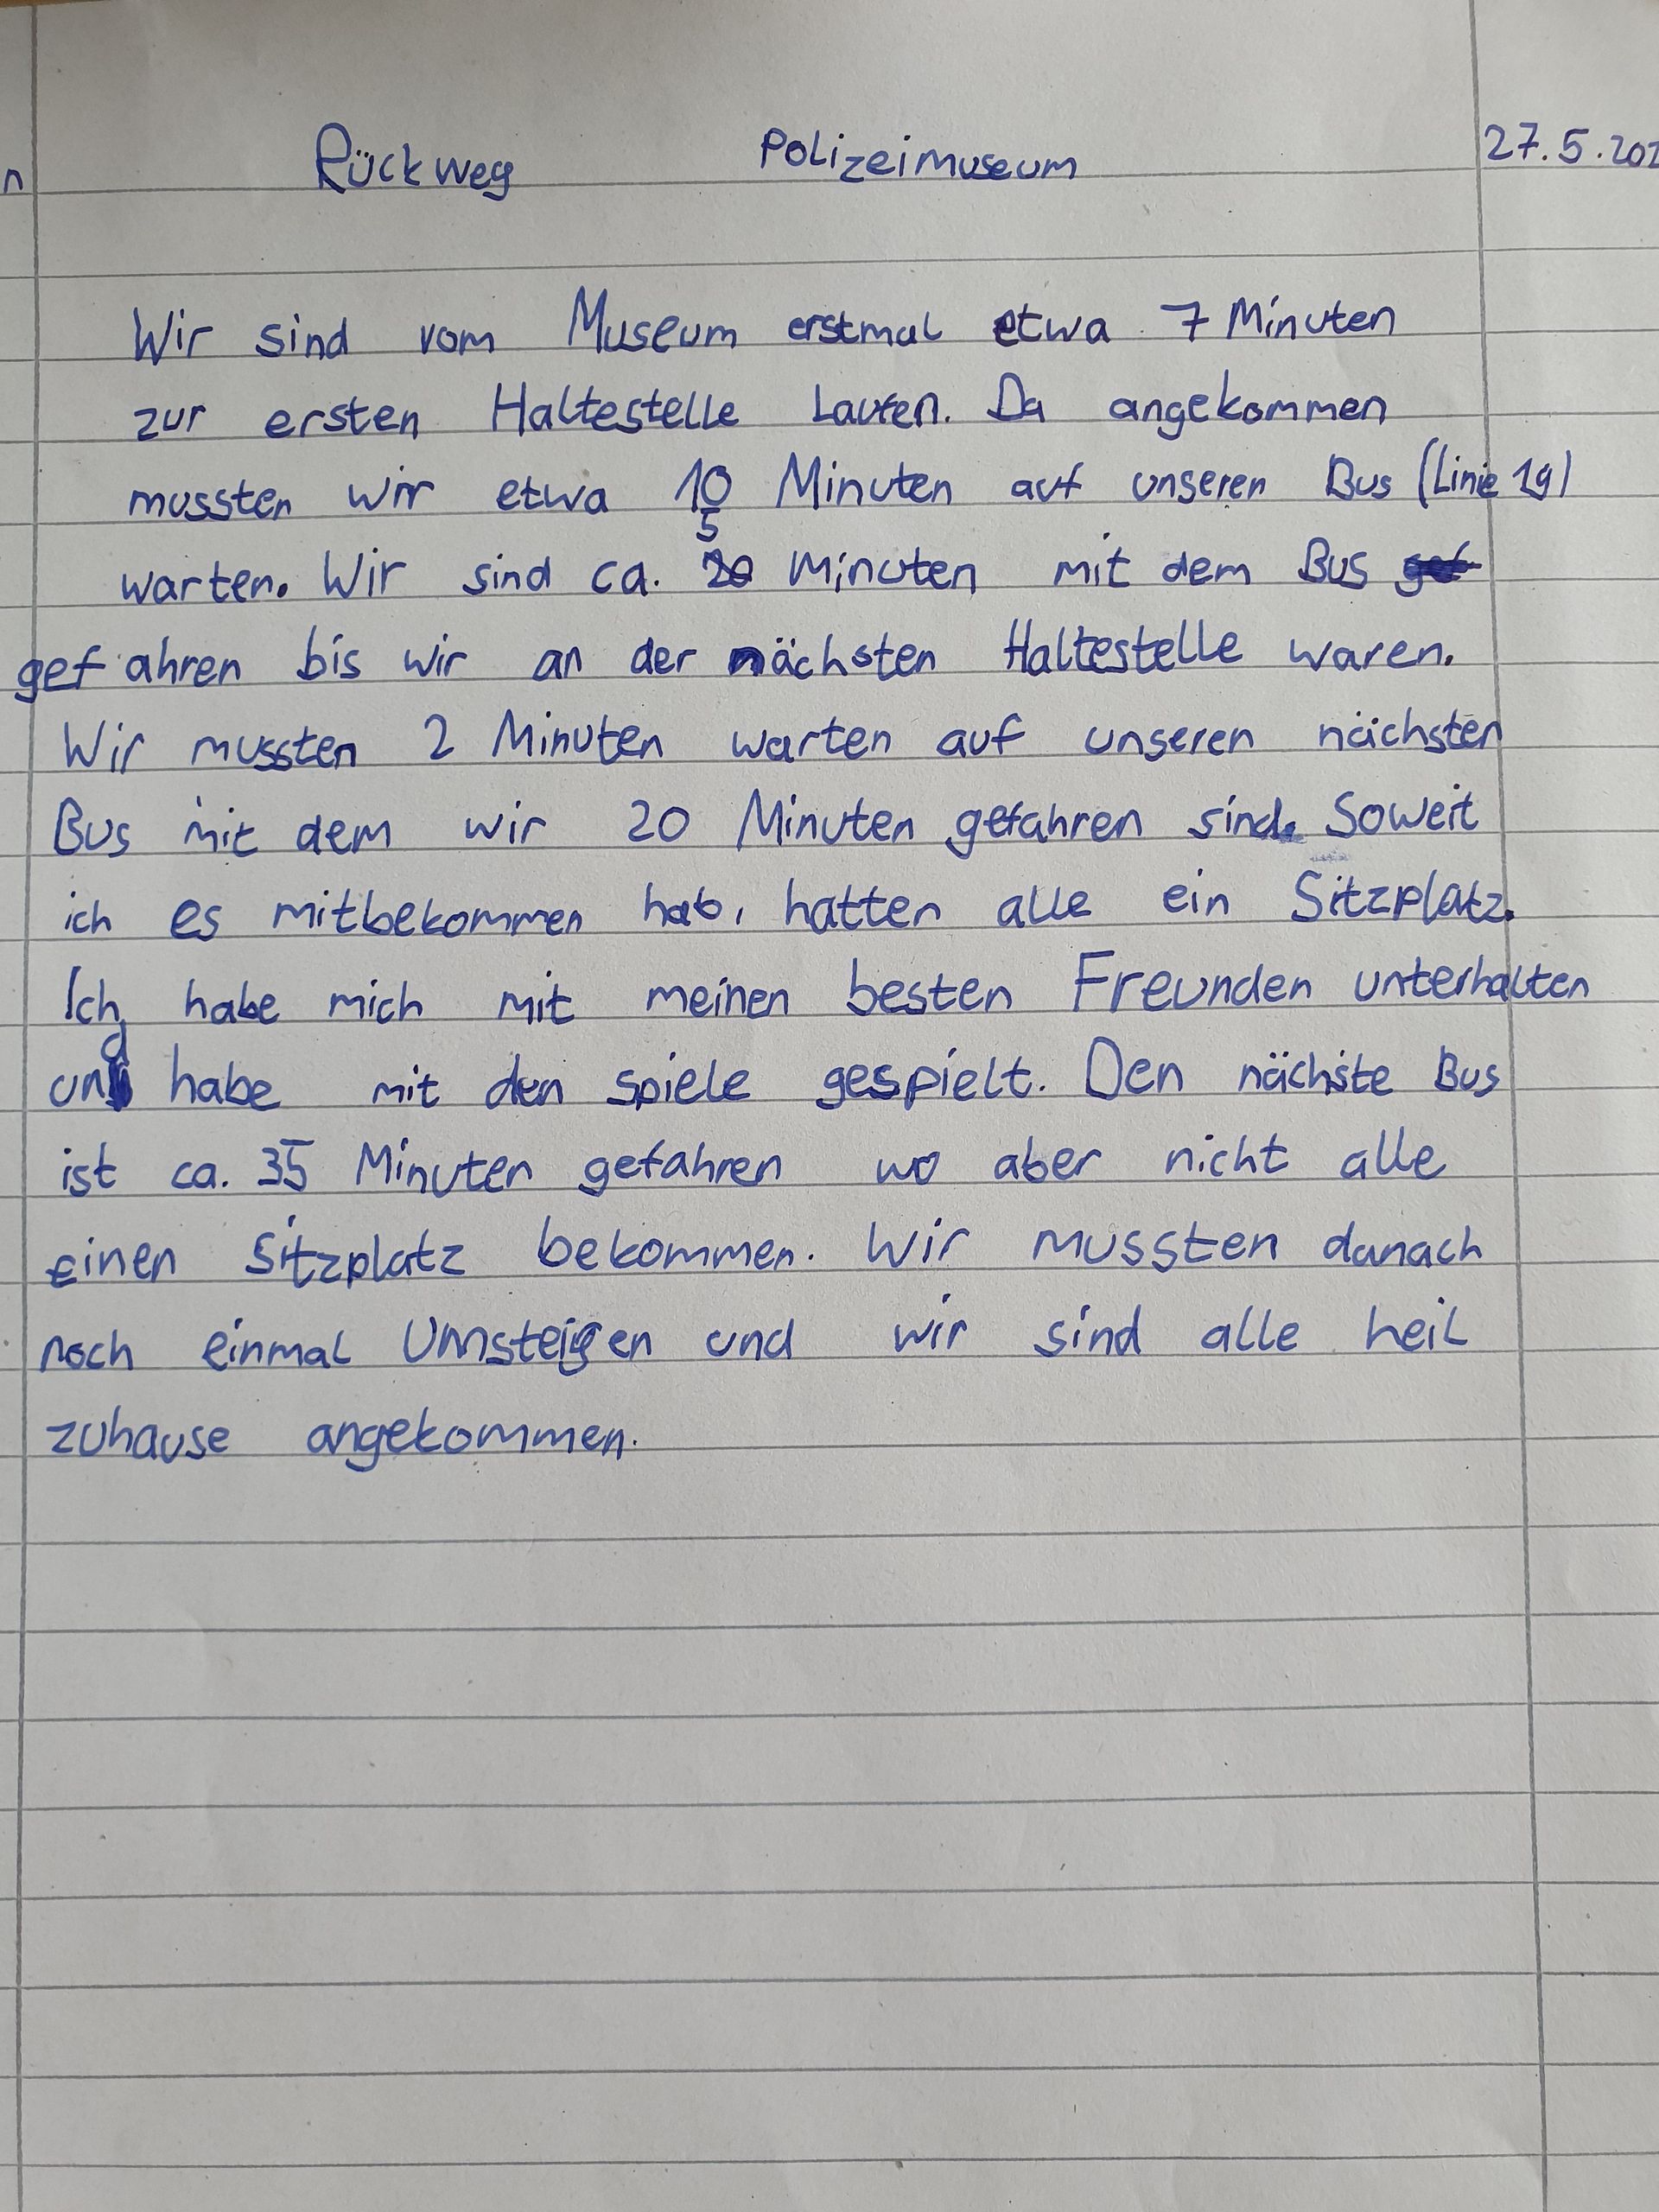 n Rückweg Polizeimuseum 27.5.202
Wir sind vom Museum erstmal etwa 7 Minuten
zur ersten Haltestelle Laufen. Da angekommen
mussten wir etwa 10 Minuten auf unseren Bus (Linie 19)
5
warten. Wir sind ca. 20 Minuten mit dem Bus gef
gefahren bis wir an der nächsten Haltestelle waren.
Wir mussten 2 Minuten warten auf unseren nächsten
Bus mit dem wir 20 Minuten gefahren sind. Soweit
ich es mitbekommen hab, hatten alle ein Sitzplatz.
Ich habe mich mit meinen besten Freunden unterhalten
und habe mit den spiele gespielt. Den nächste Bus
ist ca. 35 Minuten gefahren wo aber nicht alle
einen Sitzplatz bekommen. Wir mussten danach
noch einmal Umsteigen und wir sind alle heil
zuhause angekommen.